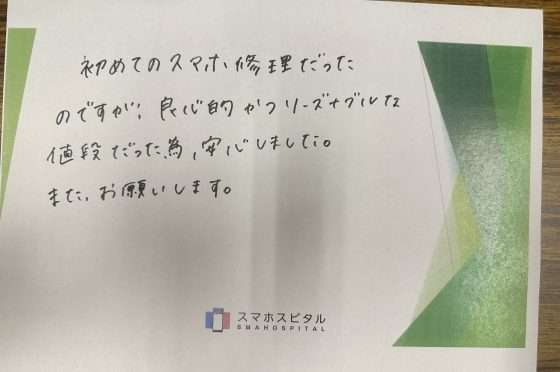 初めてのスマホ修理だった
のですが、良心的かつリーズナブルな
値段だった為、安心しました。
また、お願いします。
スマホスピタル
SMAHOSPITAL